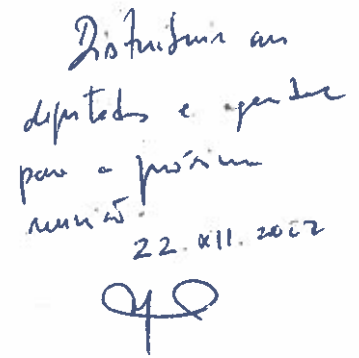 Distribuir aos
deputados e agendar
para a próxima
reunião.
22.XII.2017